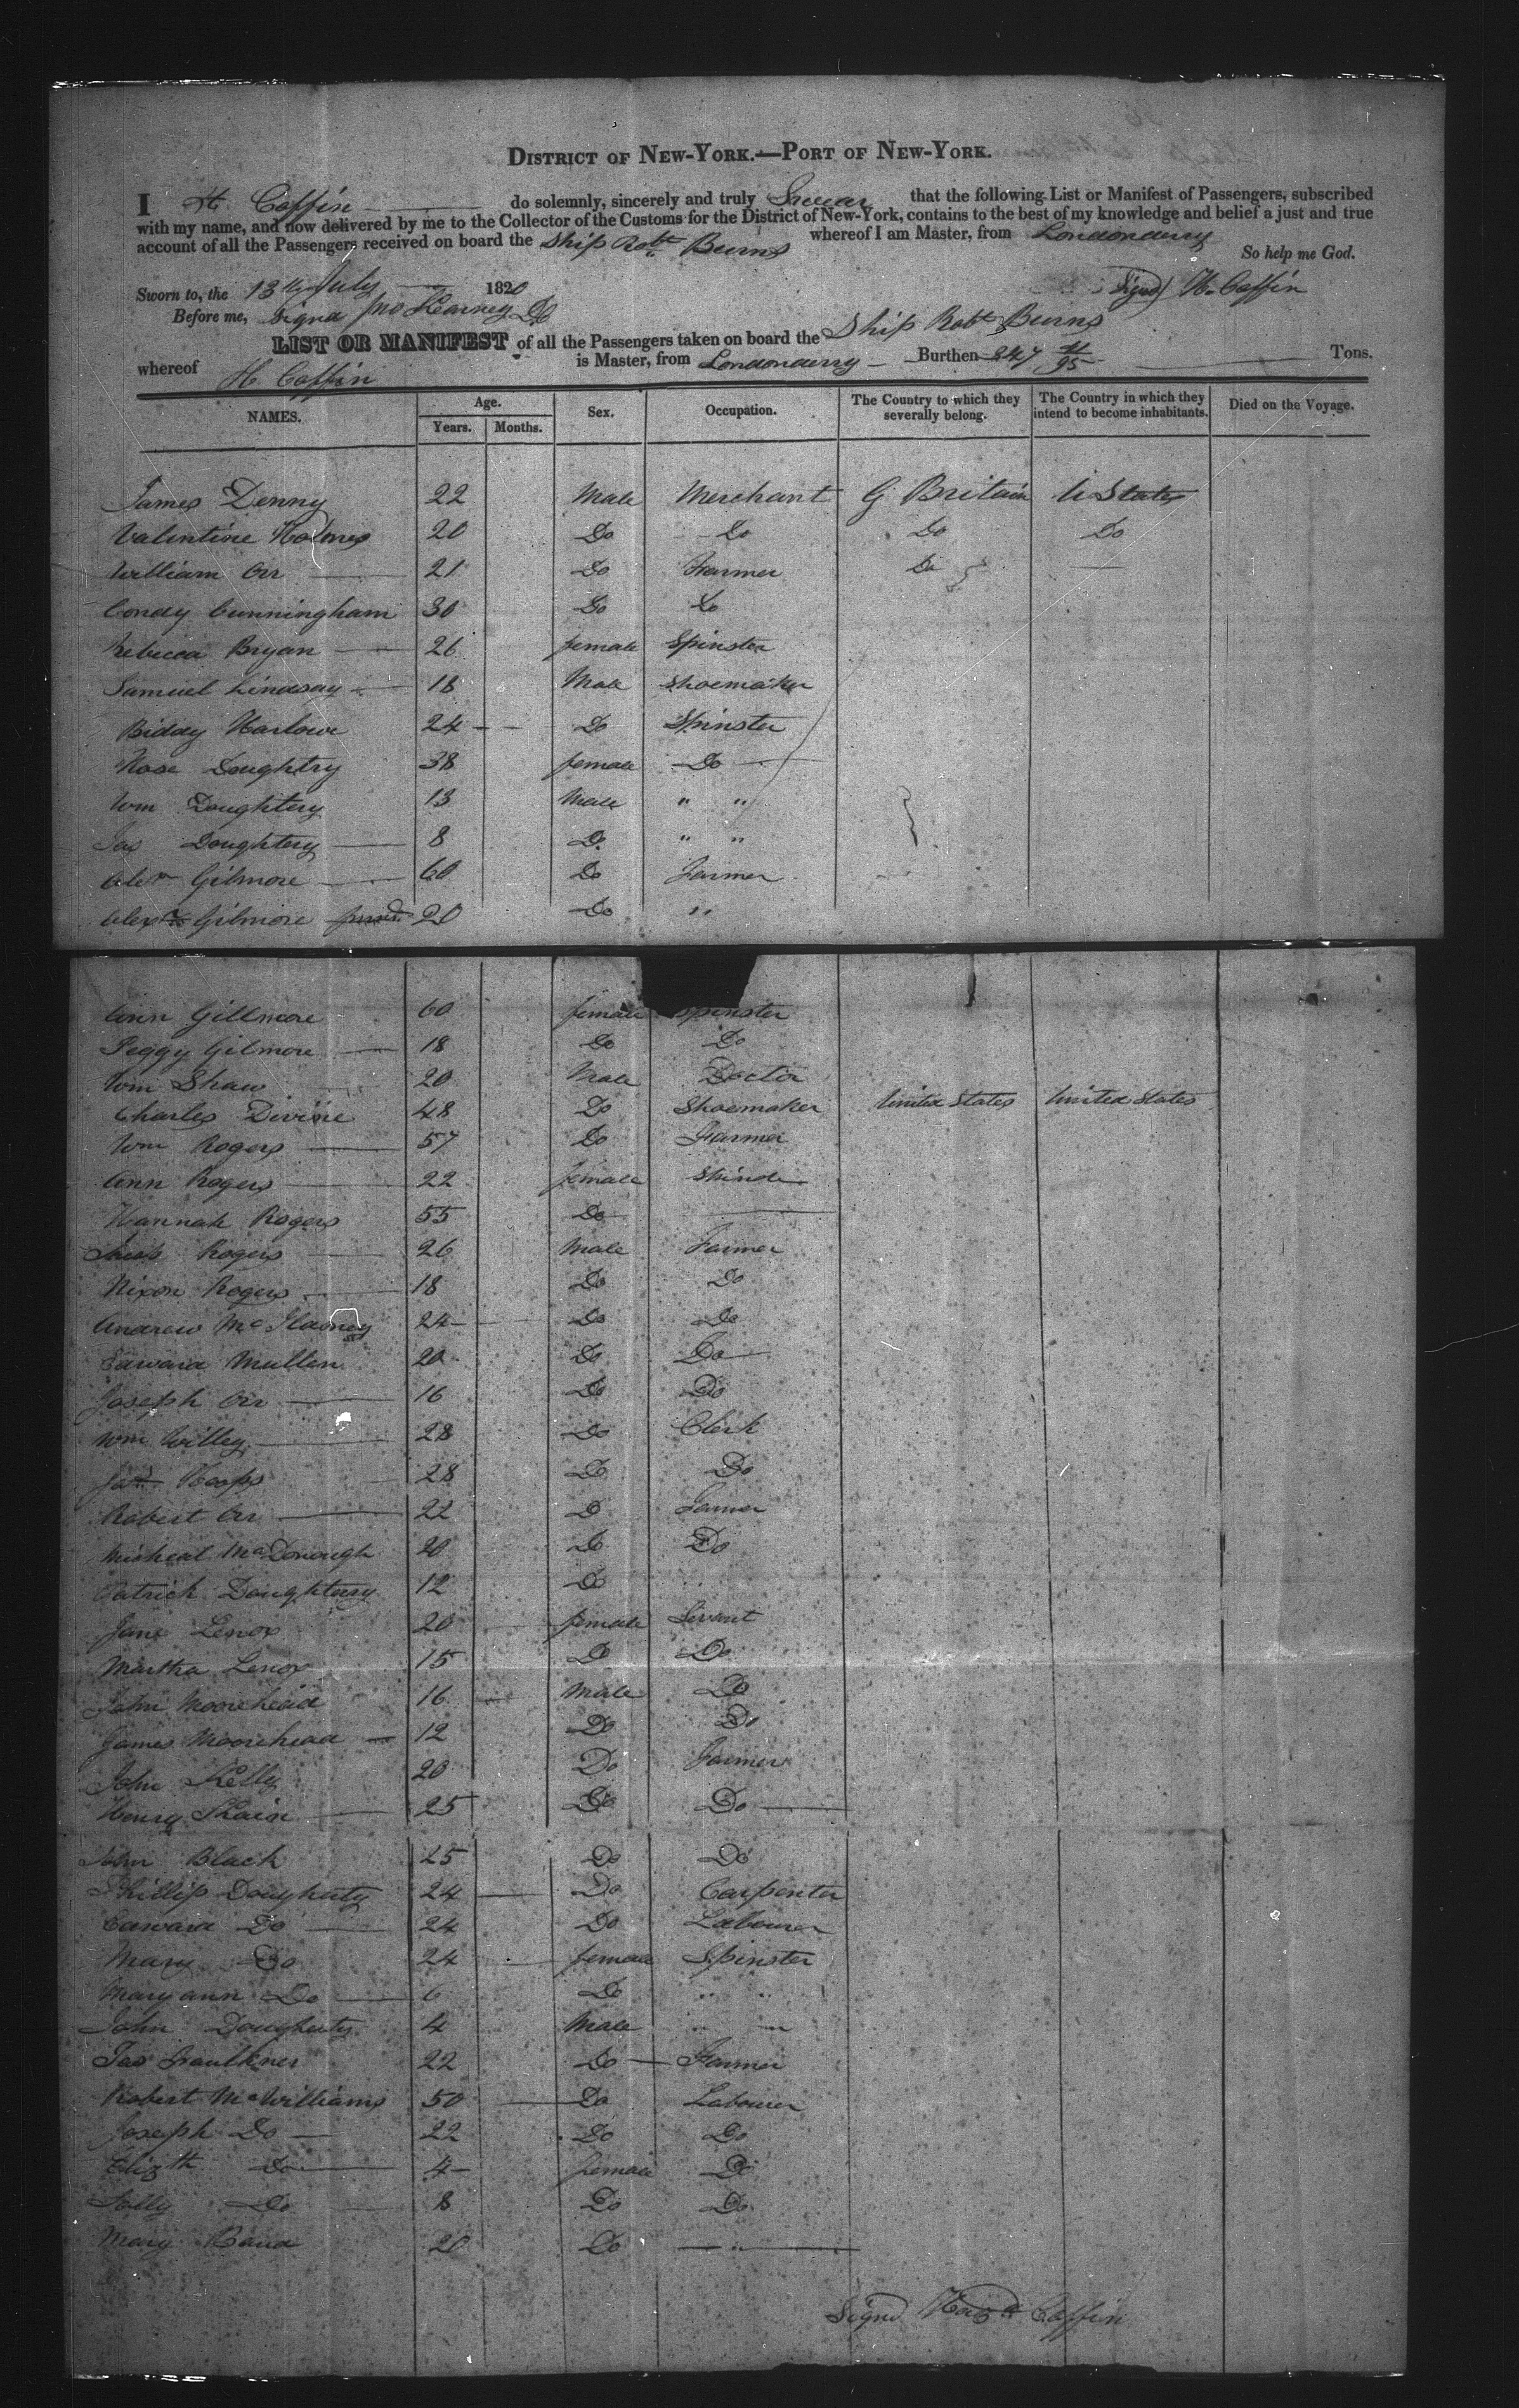 DISTRICT OF NEW-YORK.—PORT OF NEW-YORK.
I H. Coffin do solemnly, sincerely and truly Swear that the following List or Manifest of Passengers, subscribed
with my name, and now delivered by me to the Collector of the Customs for the District of New-York, contains to the best of my knowledge and belief a just and true
account of all the Passengers received on board the Ship Robt Burns whereof I am Master, from Londonderry
So help me God.
Sworn to, the 13th July 1820 Signd H. Coffin
Before me, Signd Jno Kearney
LIST OR MANIFEST of all the Passengers taken on board the Ship Robt Burns
whereof H Coffin is Master, from Londonderry — Burthen 247 /95 Tons.
NAMES. Age. Years. Months. Sex. Occupation. The Country to which they severally belong. The Country in which they intend to become inhabitants. Died on the Voyage.
James Denny 22 Male Merchant G Britain U States
Valentine Holmes 20 Do Do Do Do
William Orr 21 Do Farmer Do
Condy Cunningham 30 Do Do
Rebecca Bryan 26 female Spinster
Samuel Lindsay 18 Male Shoemaker
Biddy Harlowe 24 Do Spinster
Rose Doughtry 38 female Do
Wm Doughtery 13 Male " "
Jas Doughtery 8 Do " "
Alexr Gilmore 60 Do Farmer
Alexr Gilmore 20 Do "
Ann Gillmore 60 female Spinster
Peggy Gilmore 18 Do Do
Wm Shaw 20 Male Doctor
Charles Divine 48 Do Shoemaker United States United States
Wm Rogers 57 Do Farmer
Ann Rogers 22 female
Hannah Rogers 55 Do
Rogers 26 Male Farmer
Nixon Rogers 18 Do Do
Andrew Mc 24 Do Do
Edward Mullen 20 Do Do
Joseph Orr 16 Do Do
Wm Willey 28 Do Clerk
28 Do Do
Robert Orr 22 Do Farmer
Micheal McDonough 20 Do Do
Patrick Doughterry 12 Do
Jane Lenox 20 female Servant
Martha Lenox 15 Do Do
John Moorehead 16 Male Do
James Moorehead 12 Do Do
John Kelly 20 Do Farmer
Henry 25 Do Do
John Black 25 Do Do
Phillip Dougherty 24 Do Carpenter
Edward Do 24 Do Labourer
Mary Do 24 female Spinster
Maryann Do 6 Do " "
John Dougherty 4 Male
Jas Faulkner 22 Do Farmer
Robert McWilliams 50 Do Labourer
Joseph Do 22 Do Do
Elizth Do 4 female Do
Sally Do 8 Do Do
Mary 20 Do "
Signd Coffin